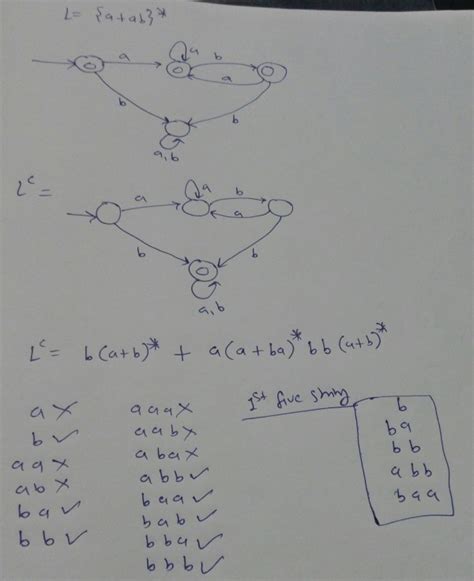 L = {a+ab}*
a
a
b
a
b
b
a,b
Lᶜ =
a
a
b
a
b
b
a,b
Lᶜ = b(a+b)* + a(a+ba)* bb(a+b)*
a ×
b ✓
aa ×
ab ×
ba ✓
bb ✓
aaa ×
aab ×
aba ×
abb ✓
baa ✓
bab ✓
bba ✓
bbb ✓
1st five string
b
ba
bb
abb
baa